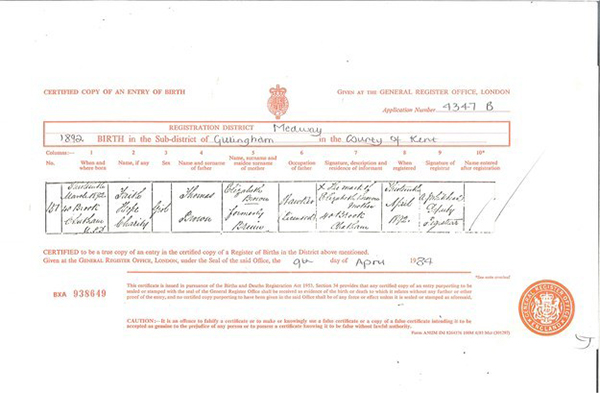 CERTIFIED COPY OF AN ENTRY OF BIRTH
GIVEN AT THE GENERAL REGISTER OFFICE, LONDON
Application Number 4347 B
REGISTRATION DISTRICT Medway
1892 BIRTH in the Sub-district of Gillingham in the County of Kent
Columns:— 1 2 3 4 5 6 7 8 9 10*
No. When and where born Name, if any Sex Name and surname of father Name, surname and maiden surname of mother Occupation of father Signature, description and residence of informant When registered Signature of registrar Name entered after registration
March 1892 Faith Thomas Elizabeth X The mark of
Brook Hope Girl Brown Elizabeth Brown April
Chatham Charity Brown formerly Mother 1892 Deputy
Brook Registrar
Chatham
CERTIFIED to be a true copy of an entry in the certified copy of a Register of Births in the District above mentioned.
Given at the GENERAL REGISTER OFFICE, LONDON, under the Seal of the said Office, the 9th day of April 1984
BXA 938649
This certificate is issued in pursuance of the Births and Deaths Registration Act 1953. Section 34 provides that any certified copy of an entry purporting to be
sealed or stamped with the seal of the General Register Office shall be received as evidence of the birth or death to which it relates without any further or other
proof of the entry, and no certified copy purporting to have been given in the said Office shall be of any force or effect unless it is sealed or stamped as aforesaid.
CAUTION:—It is an offence to falsify a certificate or to make or knowingly use a false certificate or a copy of a false certificate intending it to be
accepted as genuine to the prejudice of any person or to possess a certificate knowing it to be false without lawful authority.
GENERAL REGISTER OFFICE
ENGLAND